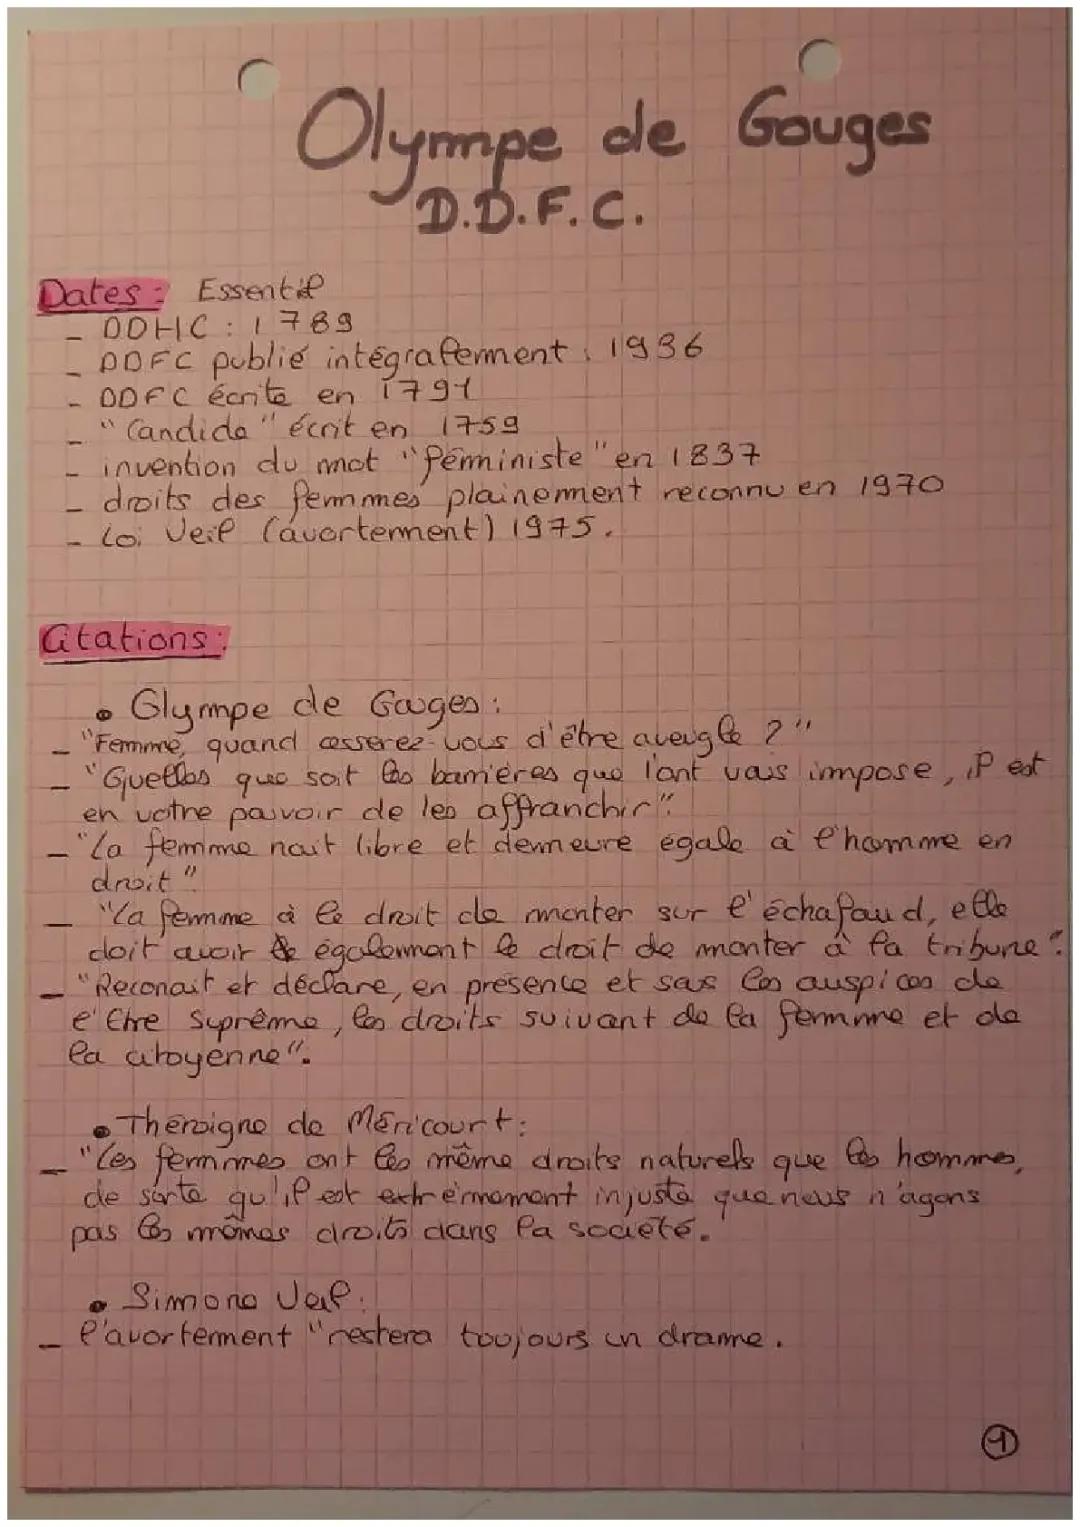 Olympe de Gouges
D.D.F.C.
Dates : Essentiel
- DDHC : 1789
- DDFC publié intégralement : 1986
- DDFC écrite en 1791
- "Candide" écrit en 1759
- invention du mot "féministe" en 1837
- droits des femmes plainement reconnu en 1970
- Loi Veil (avortement) 1975.
Citations :
• Olympe de Gouges :
- "Femme, quand cesserez-vous d'être aveugle ?"
- "Quelles que soit les barrières que l'ont vous impose, il est
en votre pouvoir de les affranchir".
- "La femme nait libre et demeure égale à l'homme en
droit".
- "La femme à le droit de monter sur l'échafaud, elle
doit avoir également le droit de monter à la tribune".
- "Reconait et déclare, en présence et sous les auspices de
l'Etre Suprême, les droits suivant de la femme et de
la citoyenne".
• Théroigne de Méricourt :
- "Les femmes ont les même droits naturels que les hommes,
de sorte qu'il est extrêmement injuste que nous n'ayons
pas les mêmes droits dans la société.
• Simone Veil :
- l'avortement "restera toujours un drame.
1